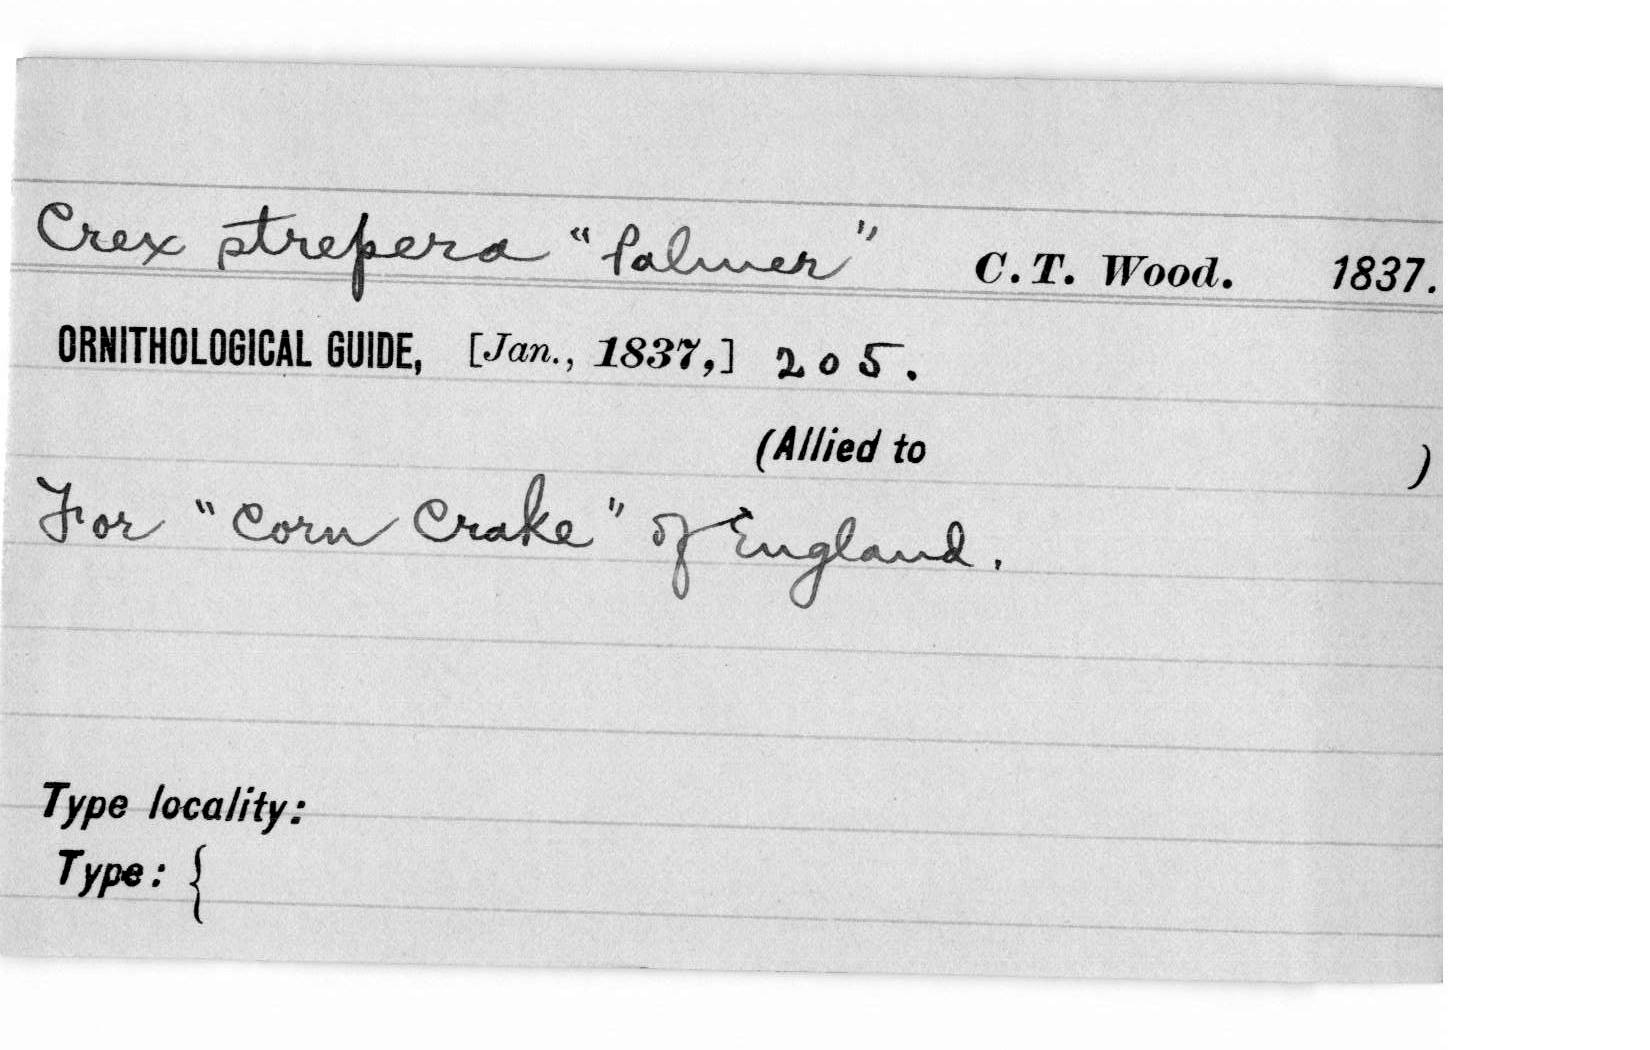 Crex strepera "Palmer" C.T. Wood. 1837.
ORNITHOLOGICAL GUIDE, [Jan., 1837,] 205.
(Allied to )
For "Corn Crake" of England.
Type locality:
Type: {